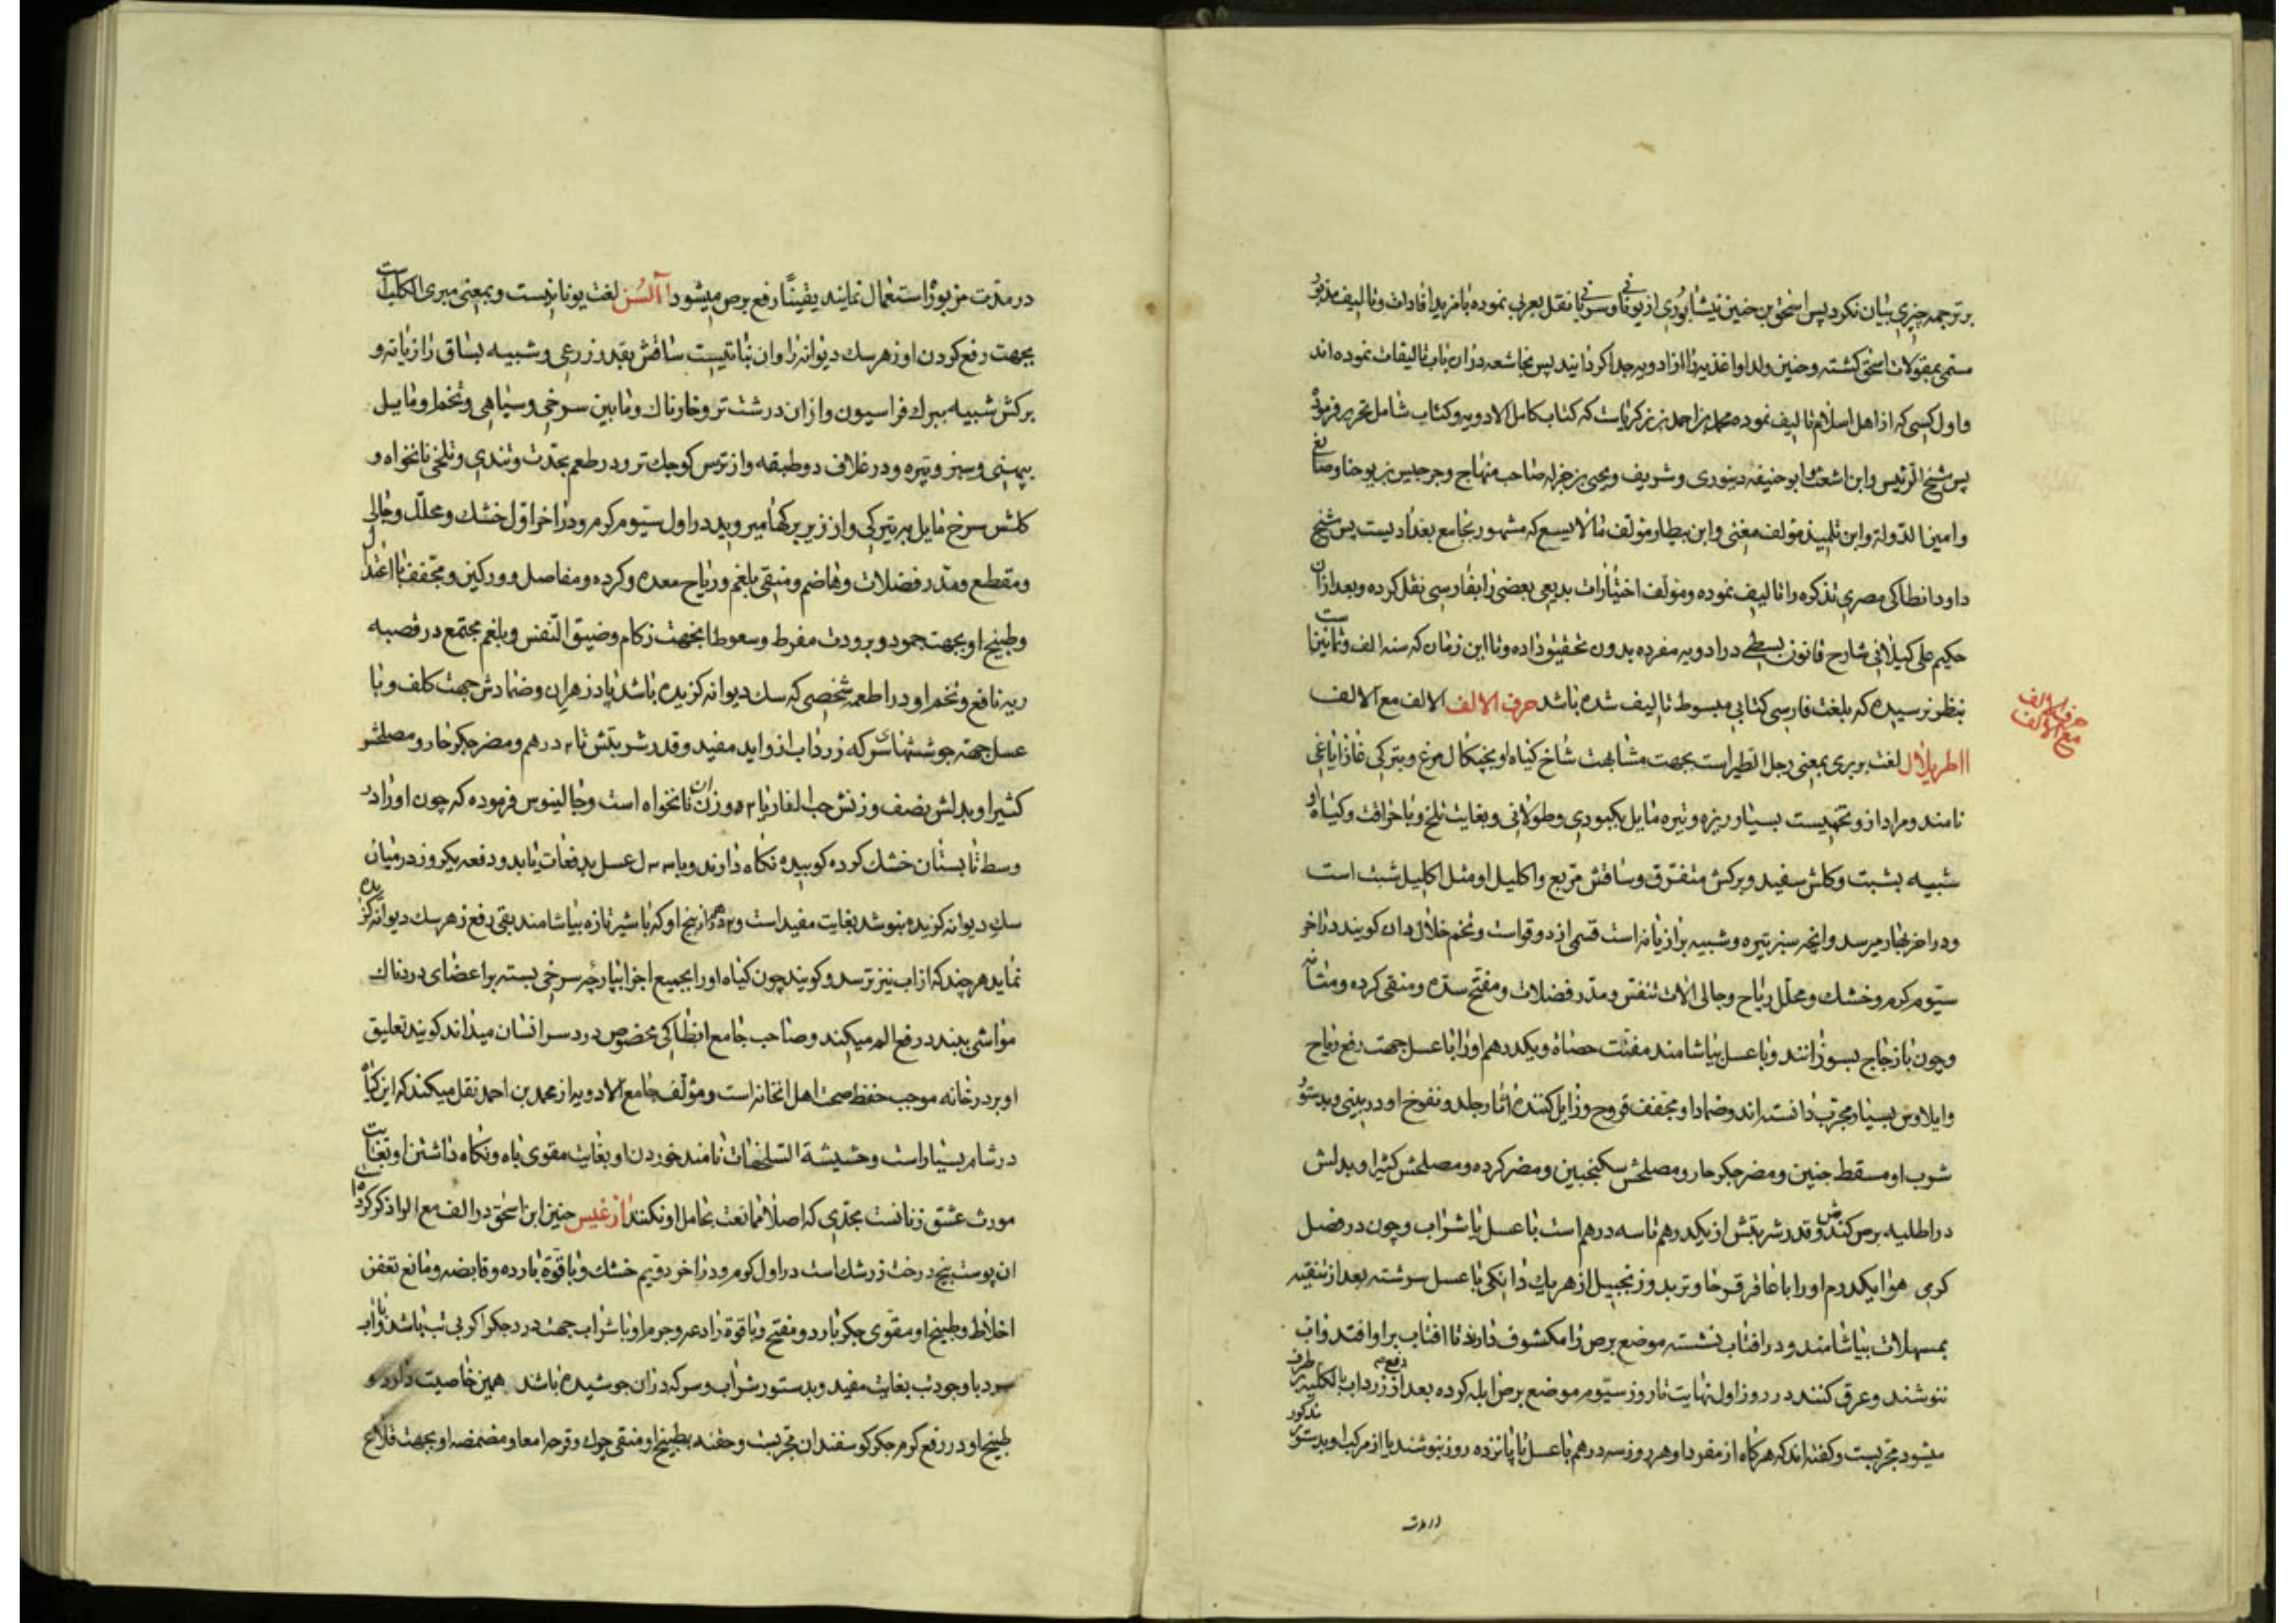 بر ترجمه چیزی بیان نکرد پس اسحق بن حنین نیشابوری از یونانی و سریانی نقل بعربی نموده با مزید افادات و تالیف مذبور
مسمی بمقولات اسحق کشته و حنین ولد او اغذیه را از ادویه جدا کردانید پس نجاشعه دران باب تالیفات نموده اند
و اول کسی که از اهل اسلام تالیف نموده محمد بن احمد بن زکریاست که کتاب کامل الادویه و کتاب شامل تحریر فرموده
پس شیخ الرئیس و ابن اشعث و ابو حنیفه دینوری و شریف و یحیی بن جزله صاحب منهاج و جرجیس بن یوحنا و صایغ
و امین الدوله و ابن تلمیذ مؤلف مغنی و ابن بیطار مؤلف مالا یسع که مشهور بجامع بغدادیست پس شیخ
داود انطاکی مصری تذکره را تالیف نموده و مؤلف اختیارات بدیعی بعضی را بفارسی نقل کرده و بعد ازان
حکیم علی کیلانی شارح قانون بسطی در ادویه مفرده بدون تحقیق داده و تا این زمان که سنه الف و ثمانین است
بنظر نرسیده که بلغت فارسی کتابی مبسوط تالیف شده باشد حرف الالف الالف مع الالف
حرف الالف مع الالف
ااطریلال لغت بربری بمعنی رجل الطیر است بجهت مشابهت شاخ کیاه او بچنکال مرغ و بترکی غازایاغی
نامند و مراد ازو تخمیست بسیار ریزه و تیره مایل بکبودی و طولانی و بغایت تلخ و با حرافت و کیاه او
شبیه بشبت و کلش سفید و برکش متفرق و ساقش مربع و اکلیل او مثل اکلیل شبت است
و در اخر بهار میرسد و انچه سبز تیره و شبیه برازیانه است قسمی از دوقواست و تخم خلال دان کویند در اخر
سیوم کرم و خشک و محلل ریاح و جالی الات تنفس و مدر فضلات و مفتح سده و منقی کرده و مثانه
و چون با زجاج بسوزانند و با عسل بیاشامند مفتت حصاة و یکدرهم او را با عسل جهت رفع ریاح
و ایلاوس بسیار مجرب دانسته اند و ضماد او مجفف قروح و زایل کننده اثار جلد و نفوخ او در بینی و بدستور
شرب او مسقط جنین و مضر جکر حار و مصلحش سکنجبین و مضر کرده و مصلحش کثیرا و بدلش
در اطلیه برص کندش و قدر شربتش از یکدرهم تا سه درهم است با عسل یا شراب و چون در فصل
کرمی هوا یکدرم او را با عاقرقرحا و تربد و زنجبیل از هریک دانکی با عسل سرشته بعد از تنقیه
بمسهلات بیاشامند و در افتاب نشسته موضع برص را مکشوف دارند تا افتاب بر او افتد و اب
ننوشند و عرق کنند در روز اول نهایت تا روز سیوم موضع برص ابله کرده بعد از دفع زرداب بالکلیه بر طرف
میشود مجربست و کفته اند که هرکاه از مفرد او هر روز سه درهم با عسل تا پانزده روز بنوشند یا از مرکب او بدستور مذکور
در مدت
در مدت مزبور استعمال نمایند یقینًا رفع برص میشود اآلسن لغت یونانیست و بمعنی مبری الکلب است
بجهت رفع کردن او زهر سک دیوانه را و ان نباتیست ساقش بقدر ذرعی و شبیه بساق رازیانه و
برکش شبیه ببرک فراسیون و ازان درشت تر و خارناک و مابین سرخی و سیاهی و تخم او مایل
بپهنی و سبز و تیره و در غلاف دو طبقه و از ترمس کوچک تر و در طعم بحدت و تندی و تلخی نانخواه و
کلش سرخ مایل به تیرکی و از زیر برکها میروید در اول سیوم کرم و در اخر اول خشک و محلل و جالی
و مقطع و مدر فضلات و هاضم و منقی بلغم و ریاح معده و کرده و مفاصل و ورکین و مجفف با اعتدال
و طبیخ او بجهت جمود و برودت مفرط و سعوطا بجهت زکام و ضیق النفس و بلغم مجتمع در قصبه
ریه نافع و تخم او در اطعمه شخصی که سک دیوانه کزیده باشد پادزهر ان و ضمادش جهت کلف و با
عسل جهته جوششهای سر که زرداب ازو اید مفید و قدر شربتش تا ۲ درهم و مضر جکر حار و مصلحش
کثیرا و بدلش نصف وزنش حب الغار یا ۲ وزن ان نانخواه است و جالینوس فرموده که چون او را در
وسط تابستان خشک کرده کوبیده نکاه دارند و با عسل بدفعات یا بدو دفعه یکروز در میان
سک دیوانه کزیده بنوشد بغایت مفید است و ۲ درهم از بیخ او که با شیر تازه بیاشامند بقی دفع زهر سک دیوانه کزیده
نماید هرچند که از اب نیز ترسد و کویند چون کیاه او را بجمیع اجزا بپارچه سرخی بسته بر اعضای دردناک
مواشی ببندد رفع الم میکند و صاحب جامع انطاکی مخصوص درد سر انسان میداند کویند تعلیق
او بر در خانه موجب حفظ صحت اهل انخانه است و مؤلف جامع الادویه از محمد بن احمد نقل میکند که این کیاه
در شام بسیار است و حشیشة السلحفات نامند خوردن او بغایت مقوی باه و نکاه داشتن او بغایت
مورث عشق زنانست بحدی که اصلا ممانعت بحامل او نکنند اازغیس حنین ابن اسحق در الف مع الواو ذکر کرده
ان پوست بیخ درخت زرشک است در اول کرم و در اخر دویم خشک و با قوة بارده و قابضه و مانع تعفن
اخلاط و طبیخ او مقوی جکر بارد و مفتح و با قوة رادعه و جرم او با شراب جهت درد جکر اکر بی تب باشد و با اب
سرد با وجود تب بغایت مفید و بدستور شراب و سرکه که دران جوشیده باشد همین خاصیت دارد و
طبیخ او در رفع کرم جکر کوسفندان مجربست و حقنه بطبیخ او منقی چرک و قرحه امعا و مضمضه او بجهت قلاع